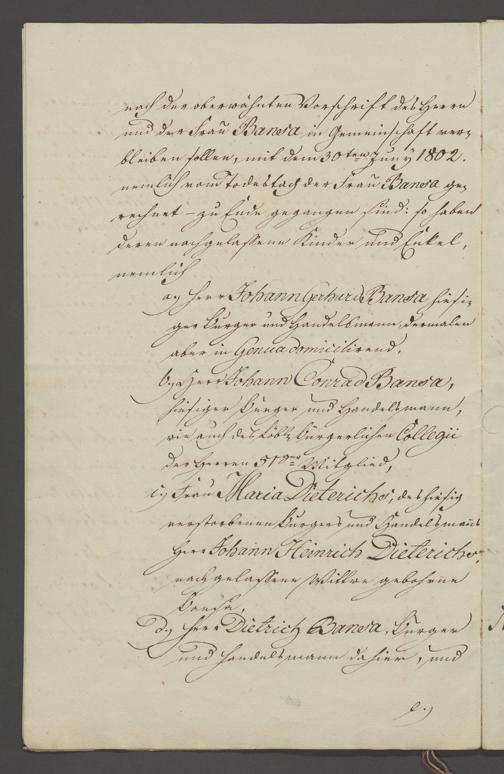 nach der oberwähnten Vorschrift des Herrn
und der Frau Bansa in Gemeinschaft ver-
bleiben sollen, mit dem 30ten Juny 1802.
nemlich vom Todestag der Frau Bansa ge-
rechnet – zu Ende gegangen sind: so haben
deren nachgelassene Kinder und Enkel,
nemlich
a.) Herr Johann Gerhard Bansa hiesi-
ger Burger und Handelsmann, dermalen
aber in Genua domicilirend,
b.) Herr Johann Conrad Bansa,
hiesiger Burger und Handelsmann,
wie auch des Löbl. bürgerlichen Collegii
der Herren 51er Mitglied,
c.) Frau Maria Dieterichs, des hiesig
verstorbenen Burgers und Handelsmanns
Herr Johann Heinrich Dieterichs,
nachgelassene Wittwe gebohrne
Bansa,
d.) Herr Dietrich Bansa, Burger
und Handelsmann dahier, und
e.)